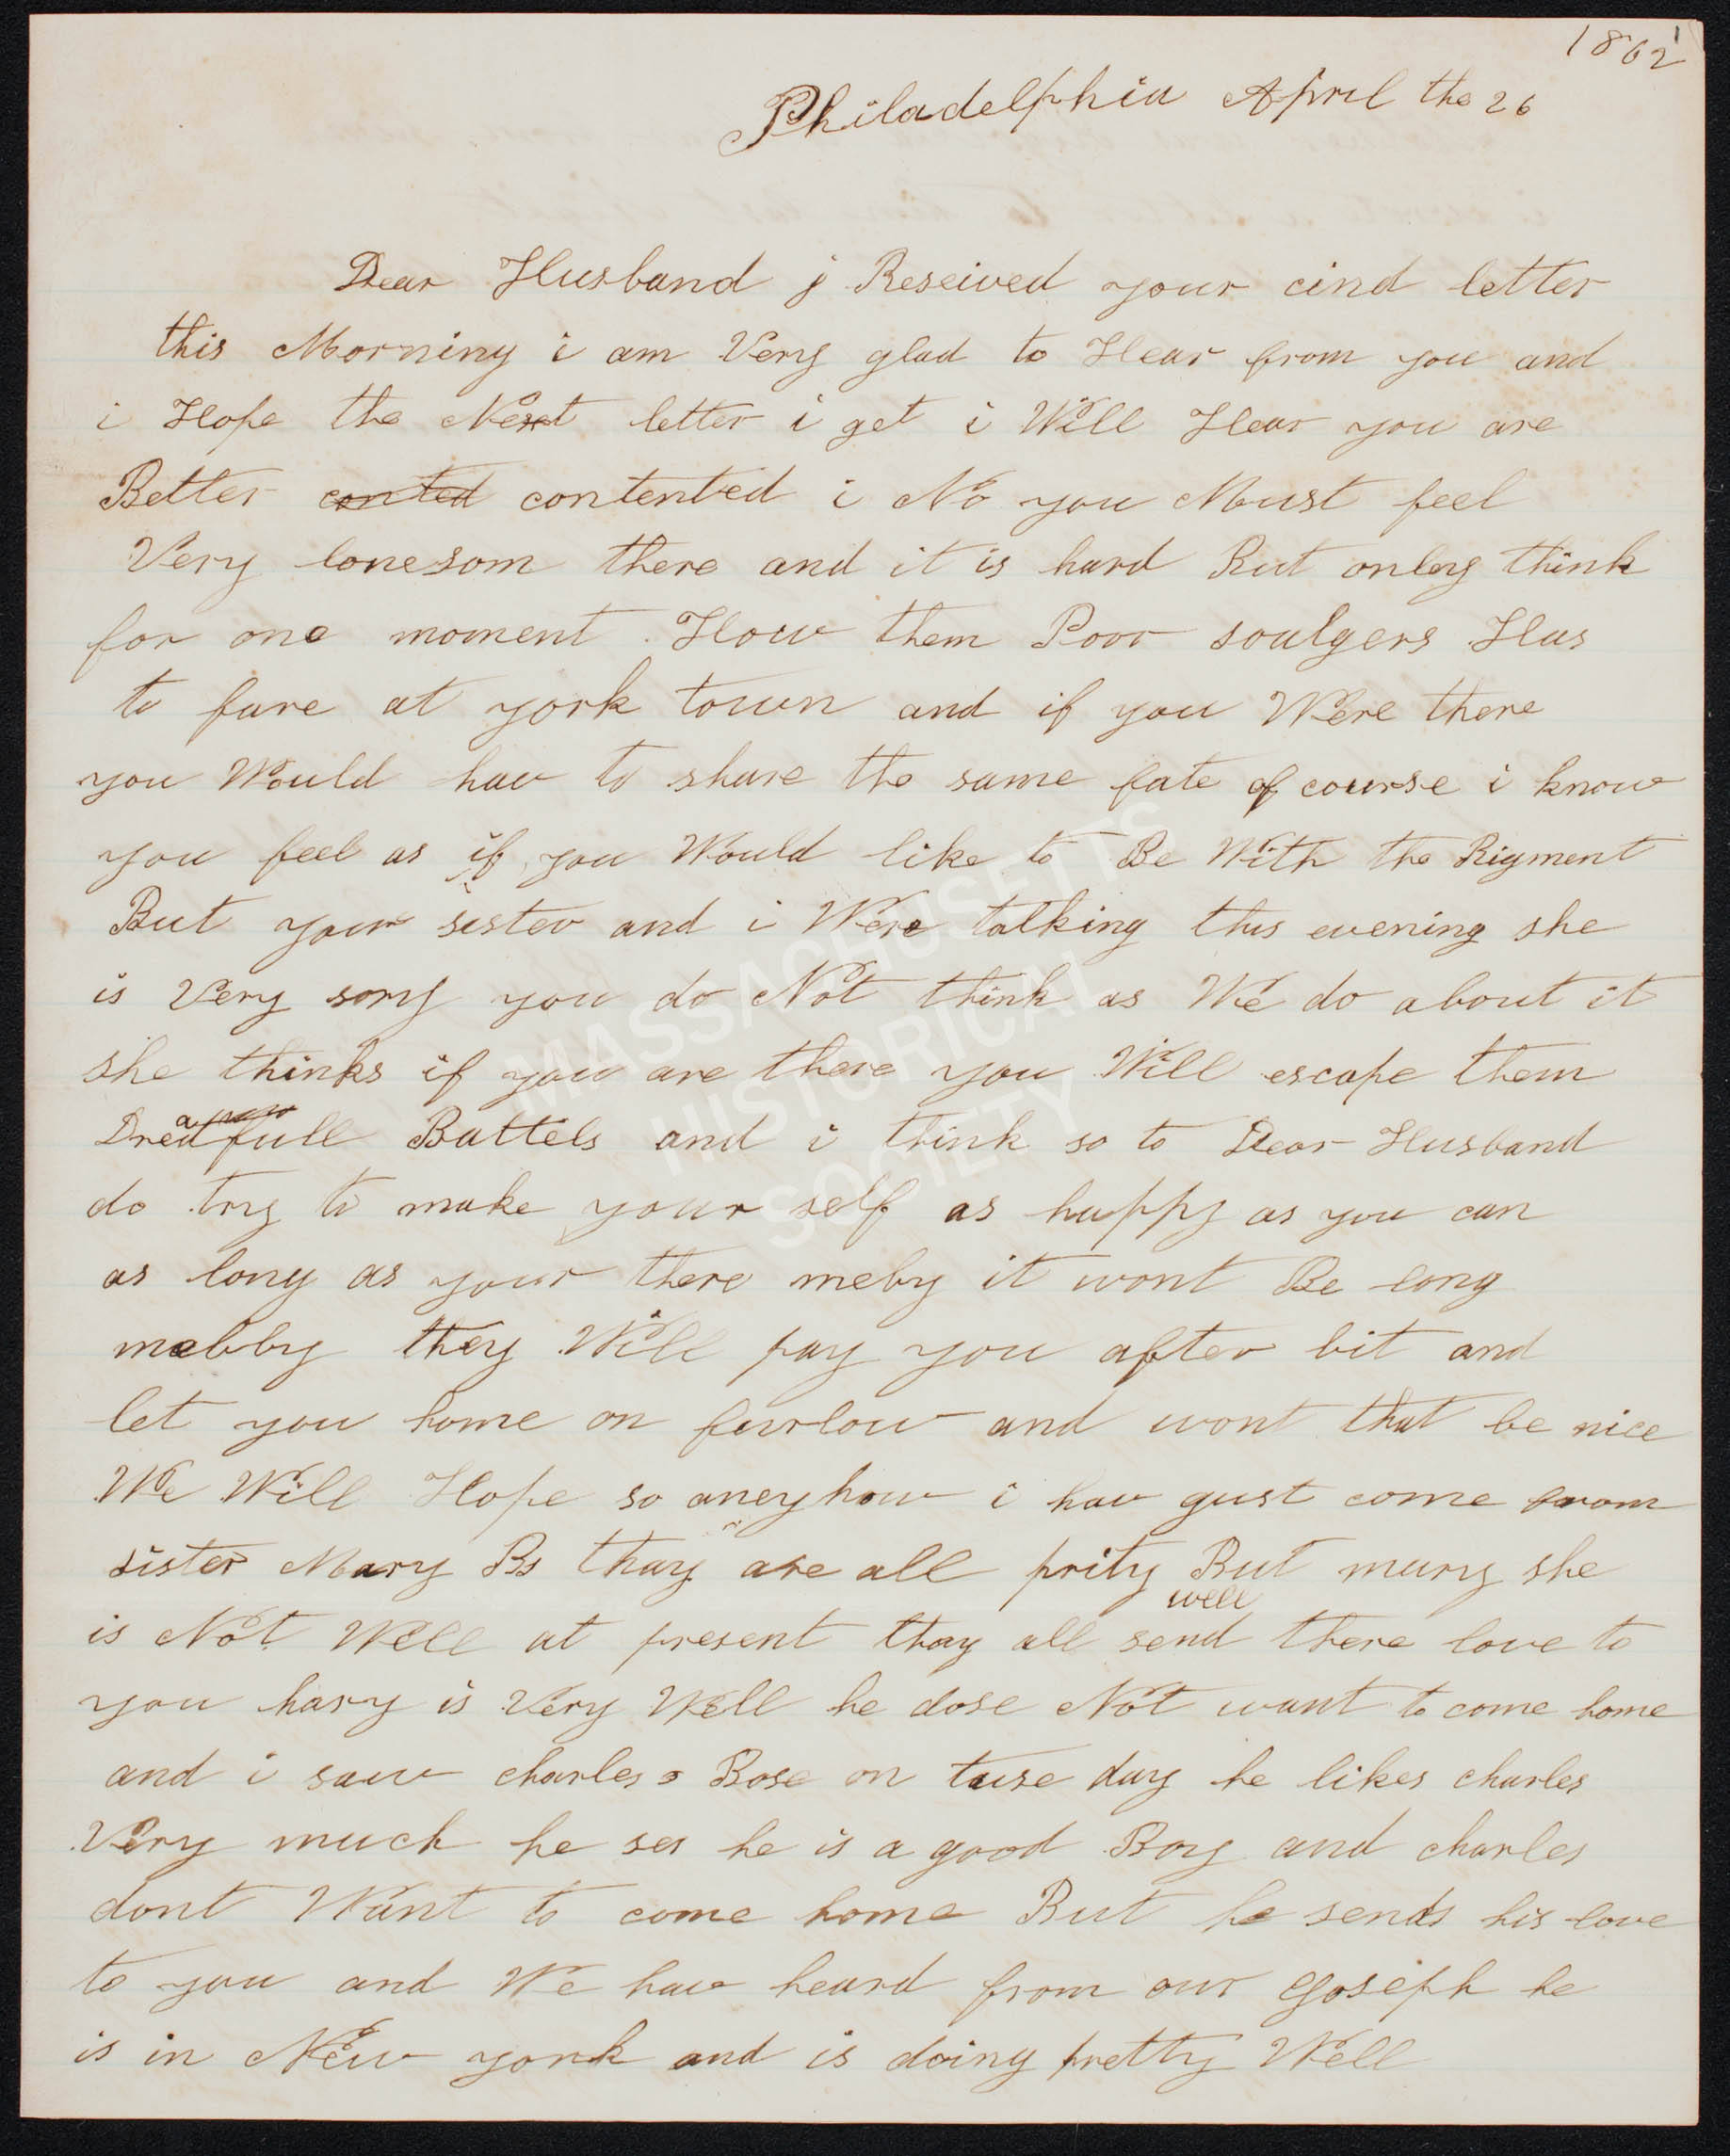 1862
Philadelphia April the 26
Dear Husband j Reseived your cind letter
this Morning i am Very glad to Hear from you and
i Hope the Next letter i get i Will Hear you are
Better conted contented i No you Must feel
Very lonesom there and it is hard But only think
for one moment . How them Poor soulgers Has
to fare at york town and if you Were there
you Would hav to share the same fate of course i know
you feel as if you Would like to Be With the Rigment
But your sister and i Were talking this evening she
is Very sory you do Not think as We do about it
she thinks if you are there you Will escape them
Dreadfull Battels and i think so to Dear Husband
do try to make your self as happy as you can
as long as your there meby it wont Be long
mebby they Will pay you after bit and
let you home on furlow and wont that be nice
We Will Hope so aneyhow i hav gust come from
sister Mary Bs thay are all prity But mary she
well
is Not Well at present thay all send there love to
you harry is Very Well he dose Not want to come home
and i saw charles Bose on tuse day he likes charles
Very much he ses he is a good Boy and charles
dont Want to come home But he sends his love
to you and We hav heard from our Goseph he
is in New york and is doing pretty Well
MASSACHUSETTS
HISTORICAL
SOCIETY